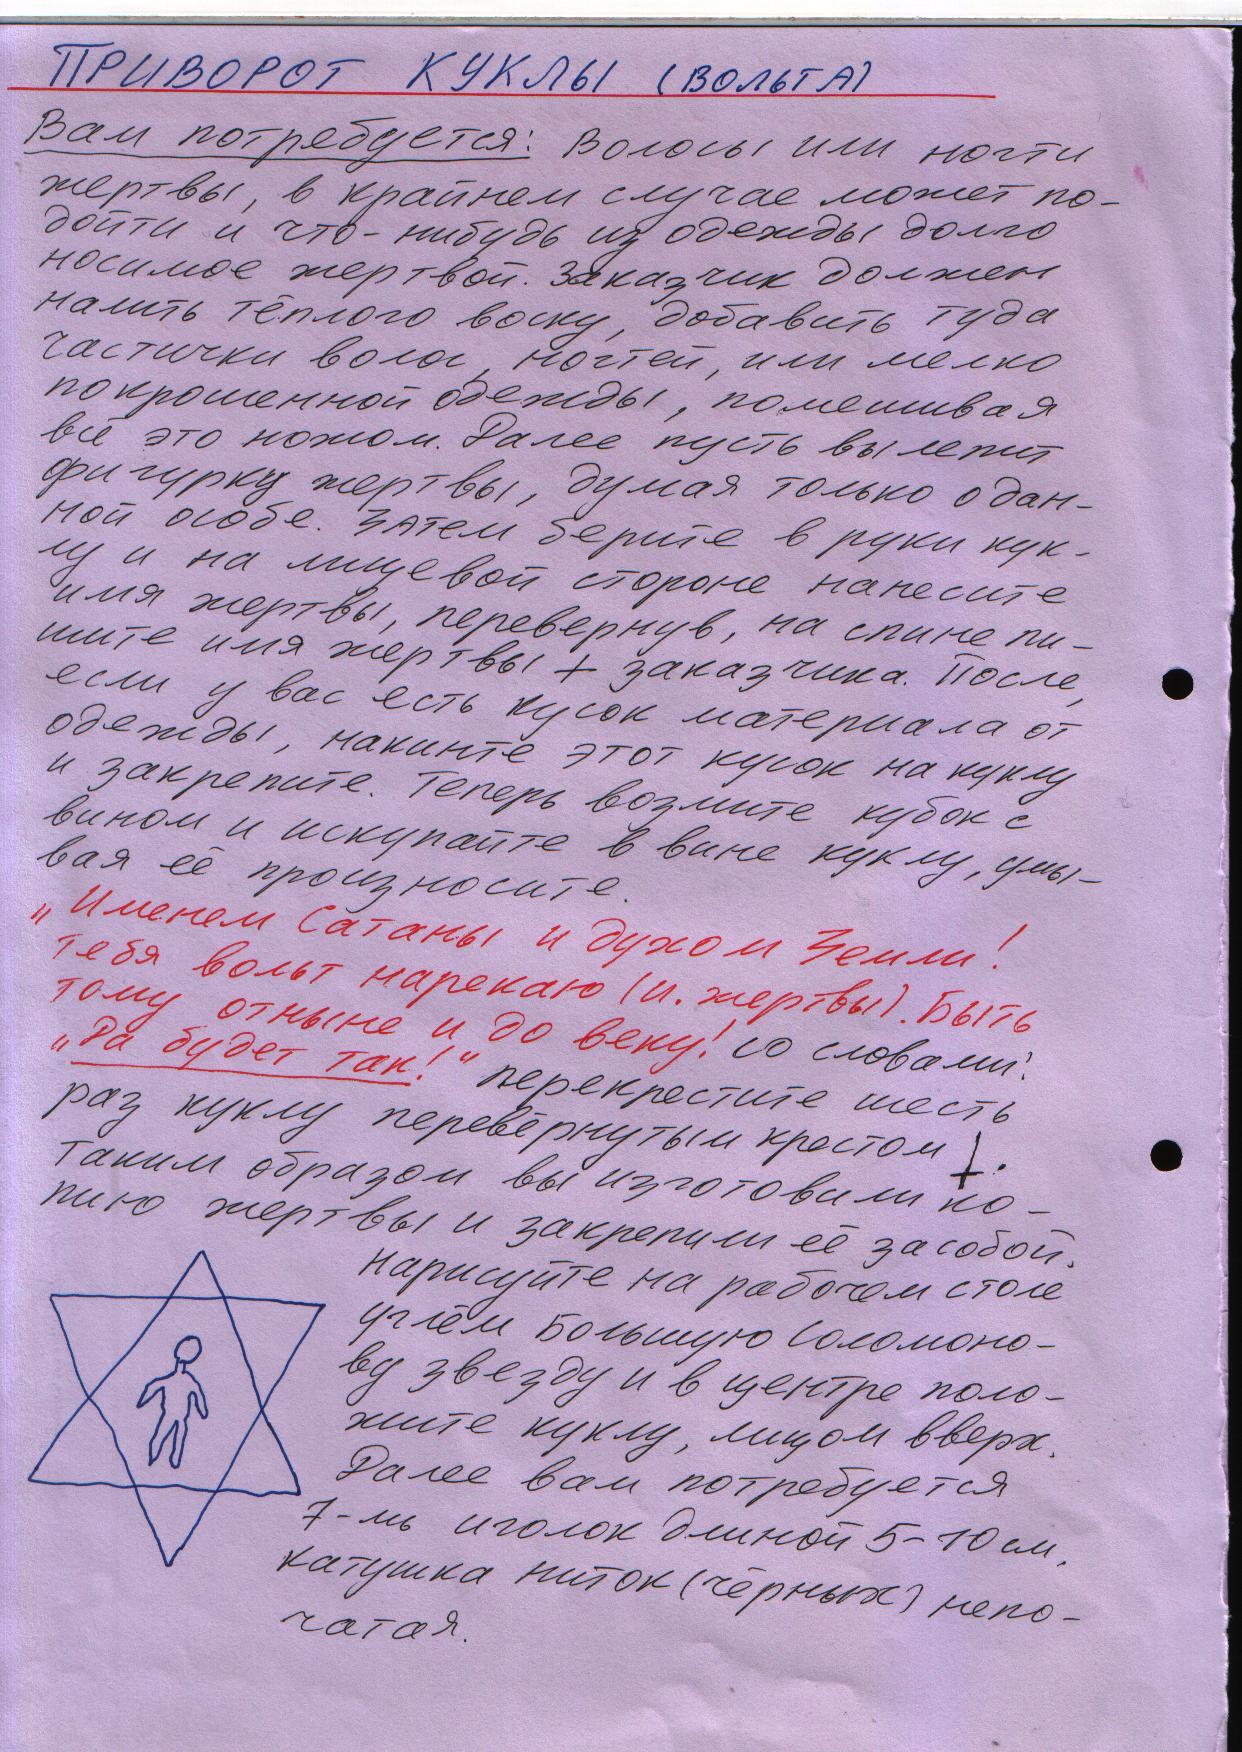 ПРИВОРОТ КУКЛЫ (ВОЛЬТА)
Вам потребуется: Волосы или ногти
жертвы, в крайнем случае может по-
дойти и что-нибудь из одежды долго
носимое жертвой. Заказчик должен
налить тёплого воску, добавить туда
частички волос, ногтей, или мелко
покрошенной одежды, помешивая
всё это ножом. Далее пусть вылепит
фигурку жертвы, думая только о дан-
ной особе. Затем берите в руки кук-
лу и на лицевой стороне нанесите
имя жертвы, перевернув, на спине пи-
шите имя жертвы + заказчика. После,
если у вас есть кусок материала от
одежды, накинте этот кусок на куклу
и закрепите. Теперь возмите кубок с
вином и искупайте в вине куклу, умы-
вая её произносите.
„Именем Сатаны и духом Земли!
тебя вольт нарекаю (и. жертвы). Быть
тому отныне и до веку! со словами:
„Да будет так!“ перекрестите шесть
раз куклу перевёрнутым крестом .
Таким образом вы изготовили ко-
пию жертвы и закрепили её засобой.
Нарисуйте на рабочем столе
углём Большую Соломоно-
ву звезду и в центре поло-
жите куклу, лицом вверх.
Далее вам потребуется
7-мь иголок длиной 5-10 см,
катушка ниток (чёрных) непо-
чатая.